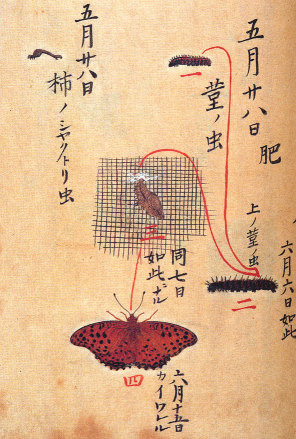 五月廿八日 肥
一
菫ノ虫
上ノ菫ノ虫
六月六日如此
二
三
同七日
如此ナル
四
六月十五日
カイワレル
五月廿八日
柿ノシャクトリ虫